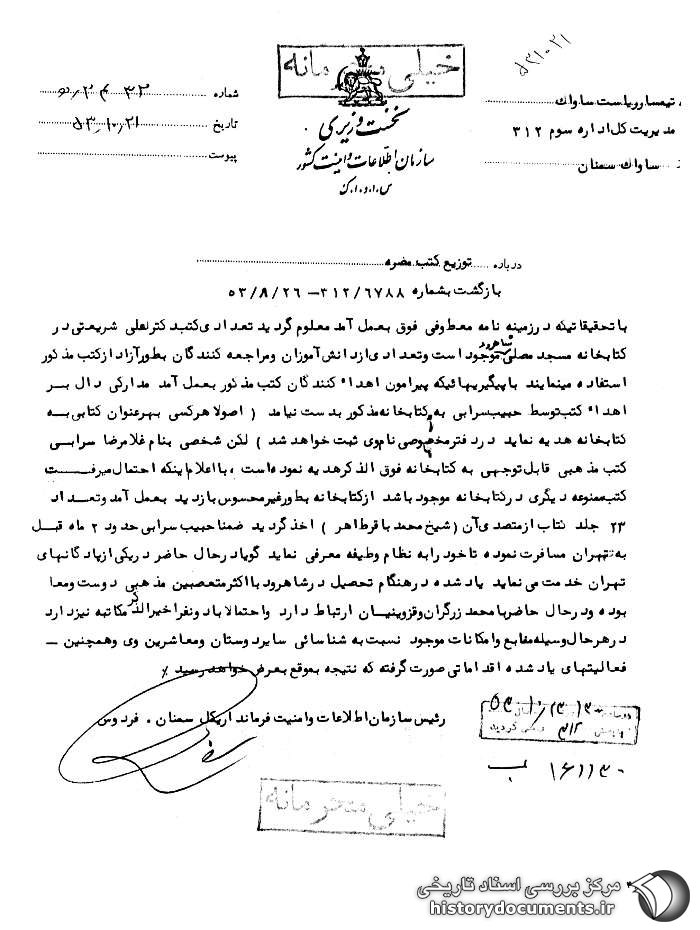 خیلی محرمانه
نخست وزیری
سازمان اطلاعات و امنیت کشور
س.ا.و.ا.ک
تیمسار ریاست ساواک
مدیریت کل اداره سوم ۳۱۲
ساواک سمنان
شماره
تاریخ ۵۳٫۱۰٫۲۱
پیوست
درباره توزیع کتب مضره
بازگشت بشماره ۳۱۲/۶۷۸۸ – ۵۳/۸/۲۶
با تحقیقاتیکه در زمینه نامه معطوفی فوق بعمل آمد معلوم گردید تعدادی کتب دکتر علی شریعتی در
کتابخانه مسجد مصلی شاهرود موجود است و تعدادی از دانش آموزان و مراجعه کنندگان بطور آزاد از کتب مذکور
استفاده مینمایند با پیگیریهائیکه پیرامون اهداء کنندگان کتب مذکور بعمل آمد مدارکی دال بر
اهداء کتب توسط حبیب سرابی به کتابخانه مذکور بدست نیامد ( اصولا هر کسی بهر عنوان کتابی به
کتابخانه هدیه نماید در دفتر مخصوصی نام وی ثبت خواهد شد ) لکن شخصی بنام غلامرضا سرابی
کتب مذهبی قابل توجهی به کتابخانه فوق الذکر هدیه نموده است ، با اعلام اینکه احتمال میرفت
کتب ممنوعه دیگری در کتابخانه موجود باشد از کتابخانه بطور غیر محسوس بازدید بعمل آمد و تعداد
۲۳ جلد کتاب از متصدی آن ( شیخ محمد باقر طاهر ) اخذ گردید ضمنا حبیب سرابی حدود ۲ ماه قبل
به تهران مسافرت نموده تا خود را به نظام وظیفه معرفی نماید گویا در حال حاضر در یکی از پادگانهای
تهران خدمت می نماید یاد شده در هنگام تحصیل در شاهرود با اکثر متعصبین مذهبی دوست و معا
بوده و در حال حاضر با محمد زرگران و قزوینیان ارتباط دارد و احتمالا با دو نفر اخیر الذکر مکاتبه نیز دارد
در هر حال وسیله منابع و امکانات موجود نسبت به شناسائی سایر دوستان و معاشرین وی و همچنین –
فعالیتهای یاد شده اقداماتی صورت گرفته که نتیجه بموقع بعرض خواهد رسید ٪
رئیس سازمان اطلاعات و امنیت فرمانداریکل سمنان . فردوس
۱۶۱۱۳۰ ب
خیلی محرمانه
مرکز بررسی اسناد تاریخی
historydocuments.ir